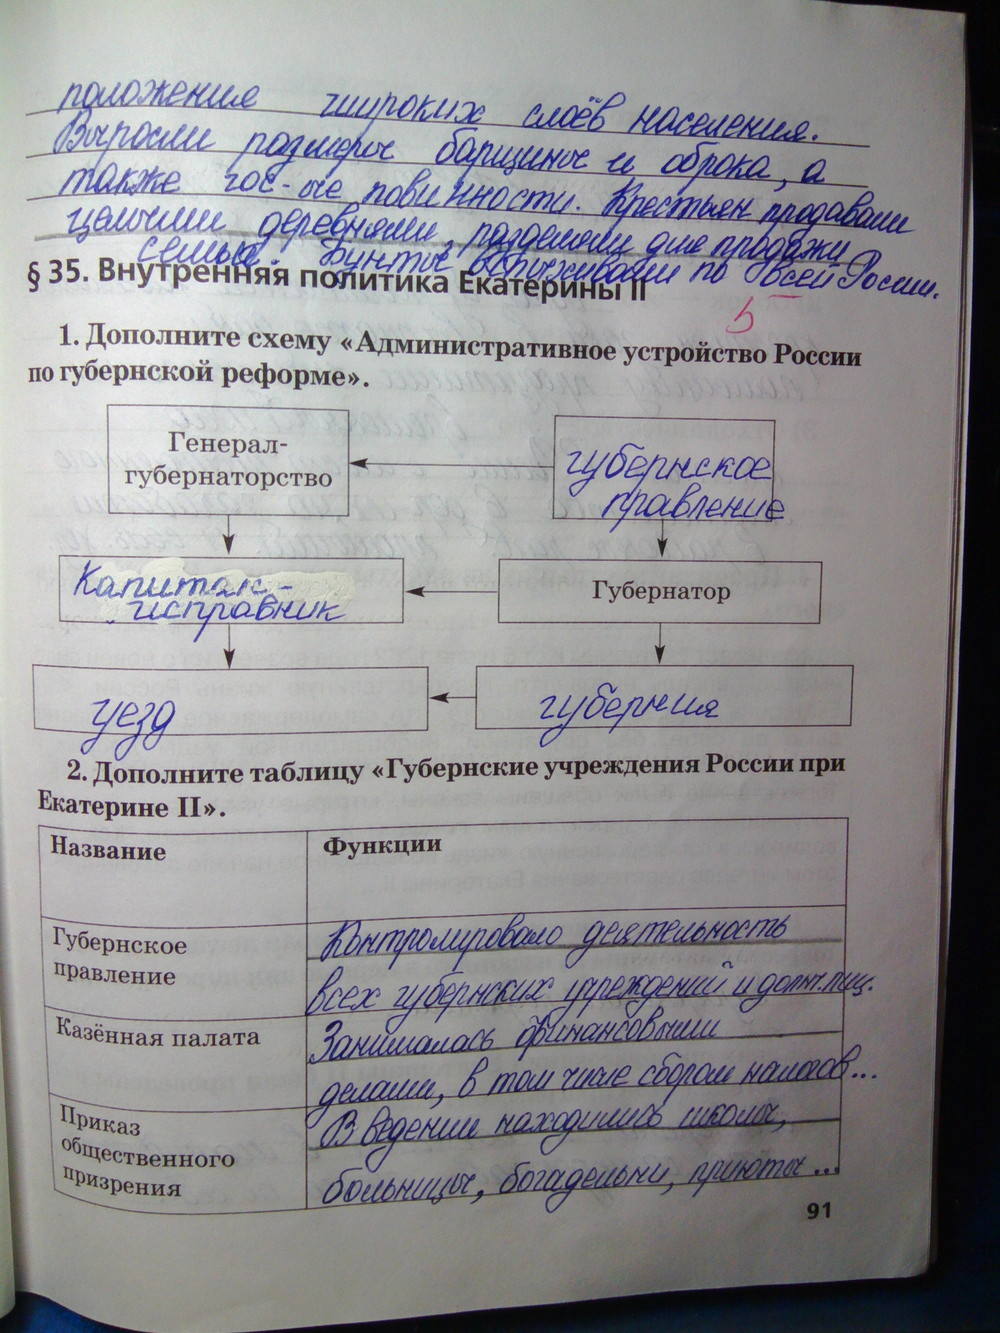 положения широких слоёв населения.
Выросли размеры барщины и оброка, а
также гос-ые повинности. Крестьян продавали
целыми деревнями, разделяли для продажи
семьи. Бунты вспыхивали по всей России.
§ 35. Внутренняя политика Екатерины II
5
1. Дополните схему «Административное устройство России
по губернской реформе».
Генерал-
губернаторство
губернское
правление
Капитан-
исправник
Губернатор
уезд
губерния
2. Дополните таблицу «Губернские учреждения России при
Екатерине II».
Название
Функции
Губернское
правление
Контролировало деятельность
всех губернских учреждений и должн.лиц.
Казённая палата
Занималась финансовыми
делами, в том числе сбором налогов...
Приказ
общественного
призрения
В ведении находились школы,
больницы, богадельни, приюты...
91